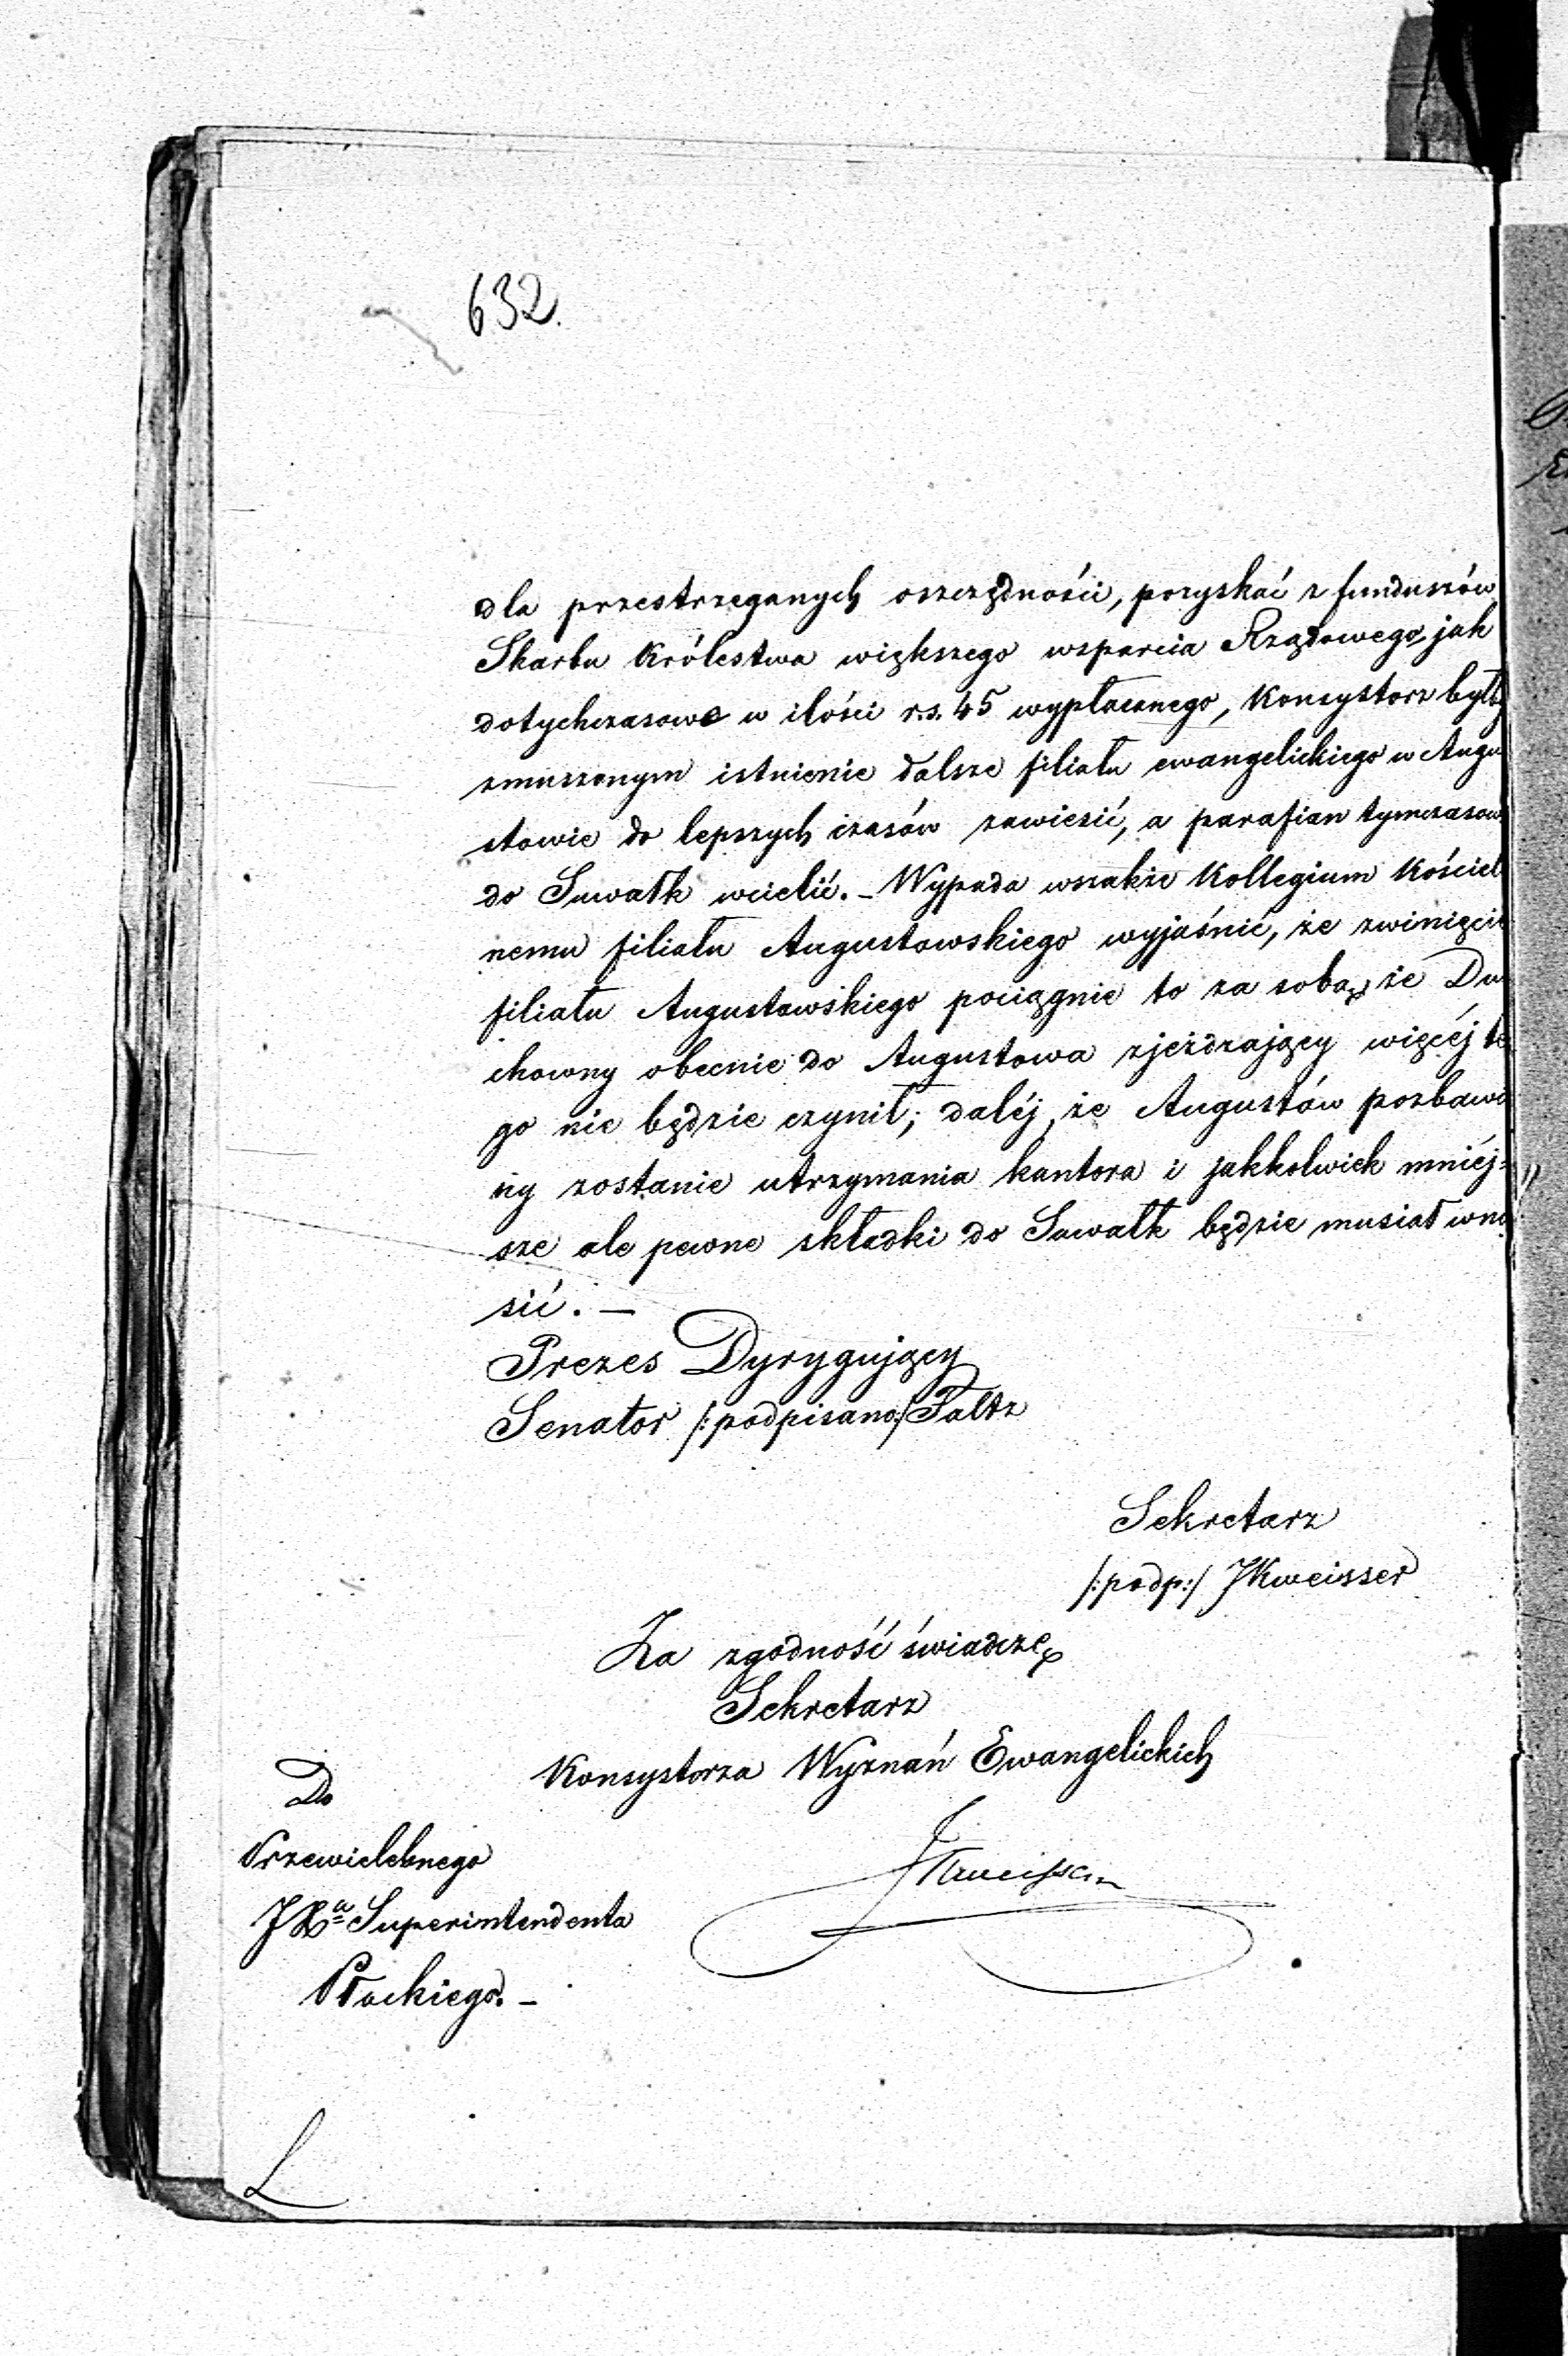 632.
dla przestrzeganych oszczędności, pozyskać z funduszów
Skarbu Królestwa większego wsparcia Rządowego, jak
dotychczasowe w ilości r.s. 45 wypłacanego, Konsystorz byłby
zmuszonym istnienie dalsze filiału ewangelickiego w Augu
stowie do lepszych czasów zawiesić, a parafian tymczasow
do Suwałk wcielić. – Wypada wszakże Kollegium Kościel
nemu filiału Augustowskiego wyjaśnić, że zwinięcie
filiału Augustowskiego pociągnie to za sobą, że Du
chowny obecnie do Augustowa zjeżdzający więcéj te
go nie będzie czynił; daléj, że Augustów pozbawio
ny zostanie utrzymania kantora i jakkolwiek mniéj=
sze ale pewne składki do Suwałk będzie musiał wno
sić. –
Prezes Dyrygujący
Senator /:podpisano:/ Faltz
Sekretarz
/:podp:/ JKweisser
Za zgodność świadczę
Sekretarz
Konsystorza Wyznań Ewangelickich
Do
Przewielebnego
JXa Superintendenta
Płockiego. –
L